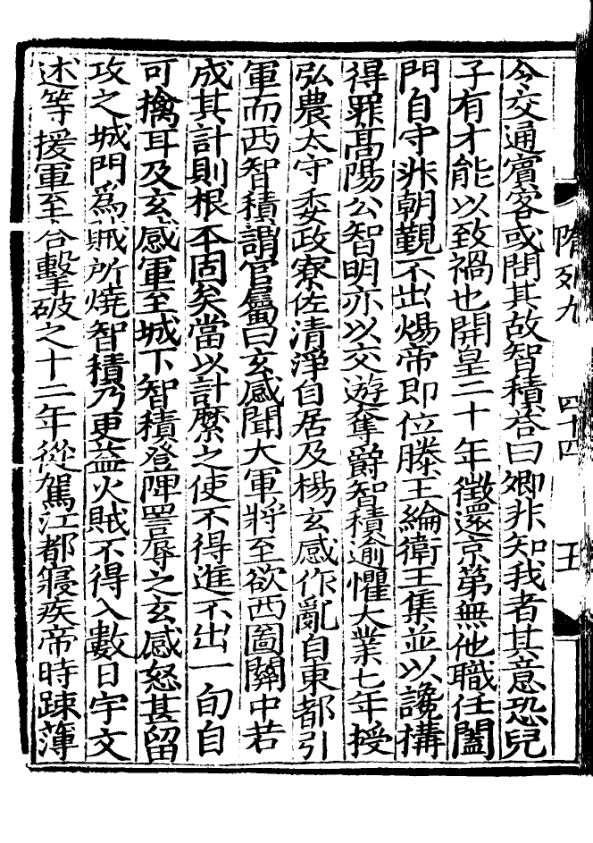 隋列九 四十四 五
令交通賓客或問其故智積荅曰卿非知我者其意恐兒
子有才能以致禍也開皇二十年徵還京第無他職任闔
門自守非朝覲不出煬帝即位滕王綸衛王集並以讒搆
得罪高陽公智明亦以交遊奪爵智積逾懼大業七年授
弘農太守委政寮佐清淨自居及楊玄感作亂自東都引
軍而西智積謂官屬曰玄感聞大軍將至欲西圖關中若
成其計則根本固矣當以計縻之使不得進不出一旬自
可擒耳及玄感軍至城下智積登陴詈辱之玄感怒甚留
攻之城門爲賊所燒智積乃更益火賊不得入數日宇文
述等援軍至合擊破之十二年從駕江都寢疾帝時踈薄